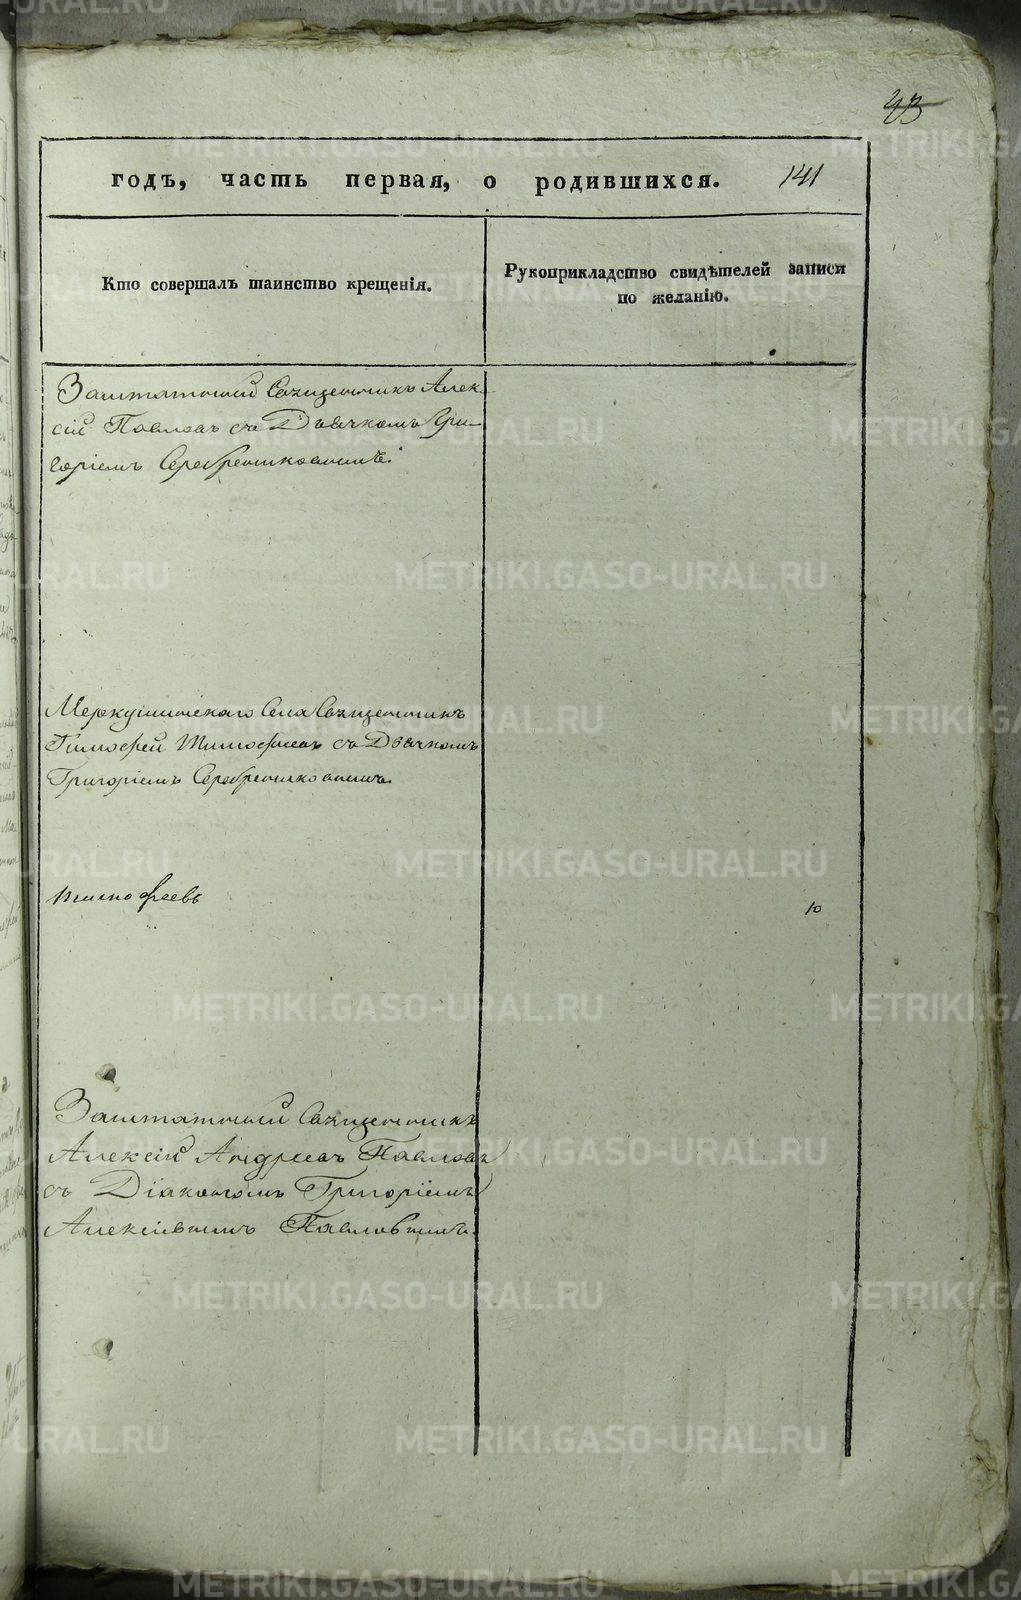 43
годъ, часть первая, о родившихся. 141
Кто совершалъ таинство крещенія.
Рукоприкладство свидѣтелей записи
по желанію.
Заштатный Священникъ Алек-
сій Павловъ съ Дьячкомъ Гри-
горіемъ Серебренниковымъ.
Меркушинскаго Села Священникъ
Тимофей Тимофеевъ съ Дьячкомъ
Григоріемъ Серебренниковымъ
Тимофеевъ
10
Заштатный Священникъ
Алексій Андреевъ Павловъ
съ Діакономъ Григоріемъ
Алексіевымъ Павловымъ.
METRIKI.GASO-URAL.RU